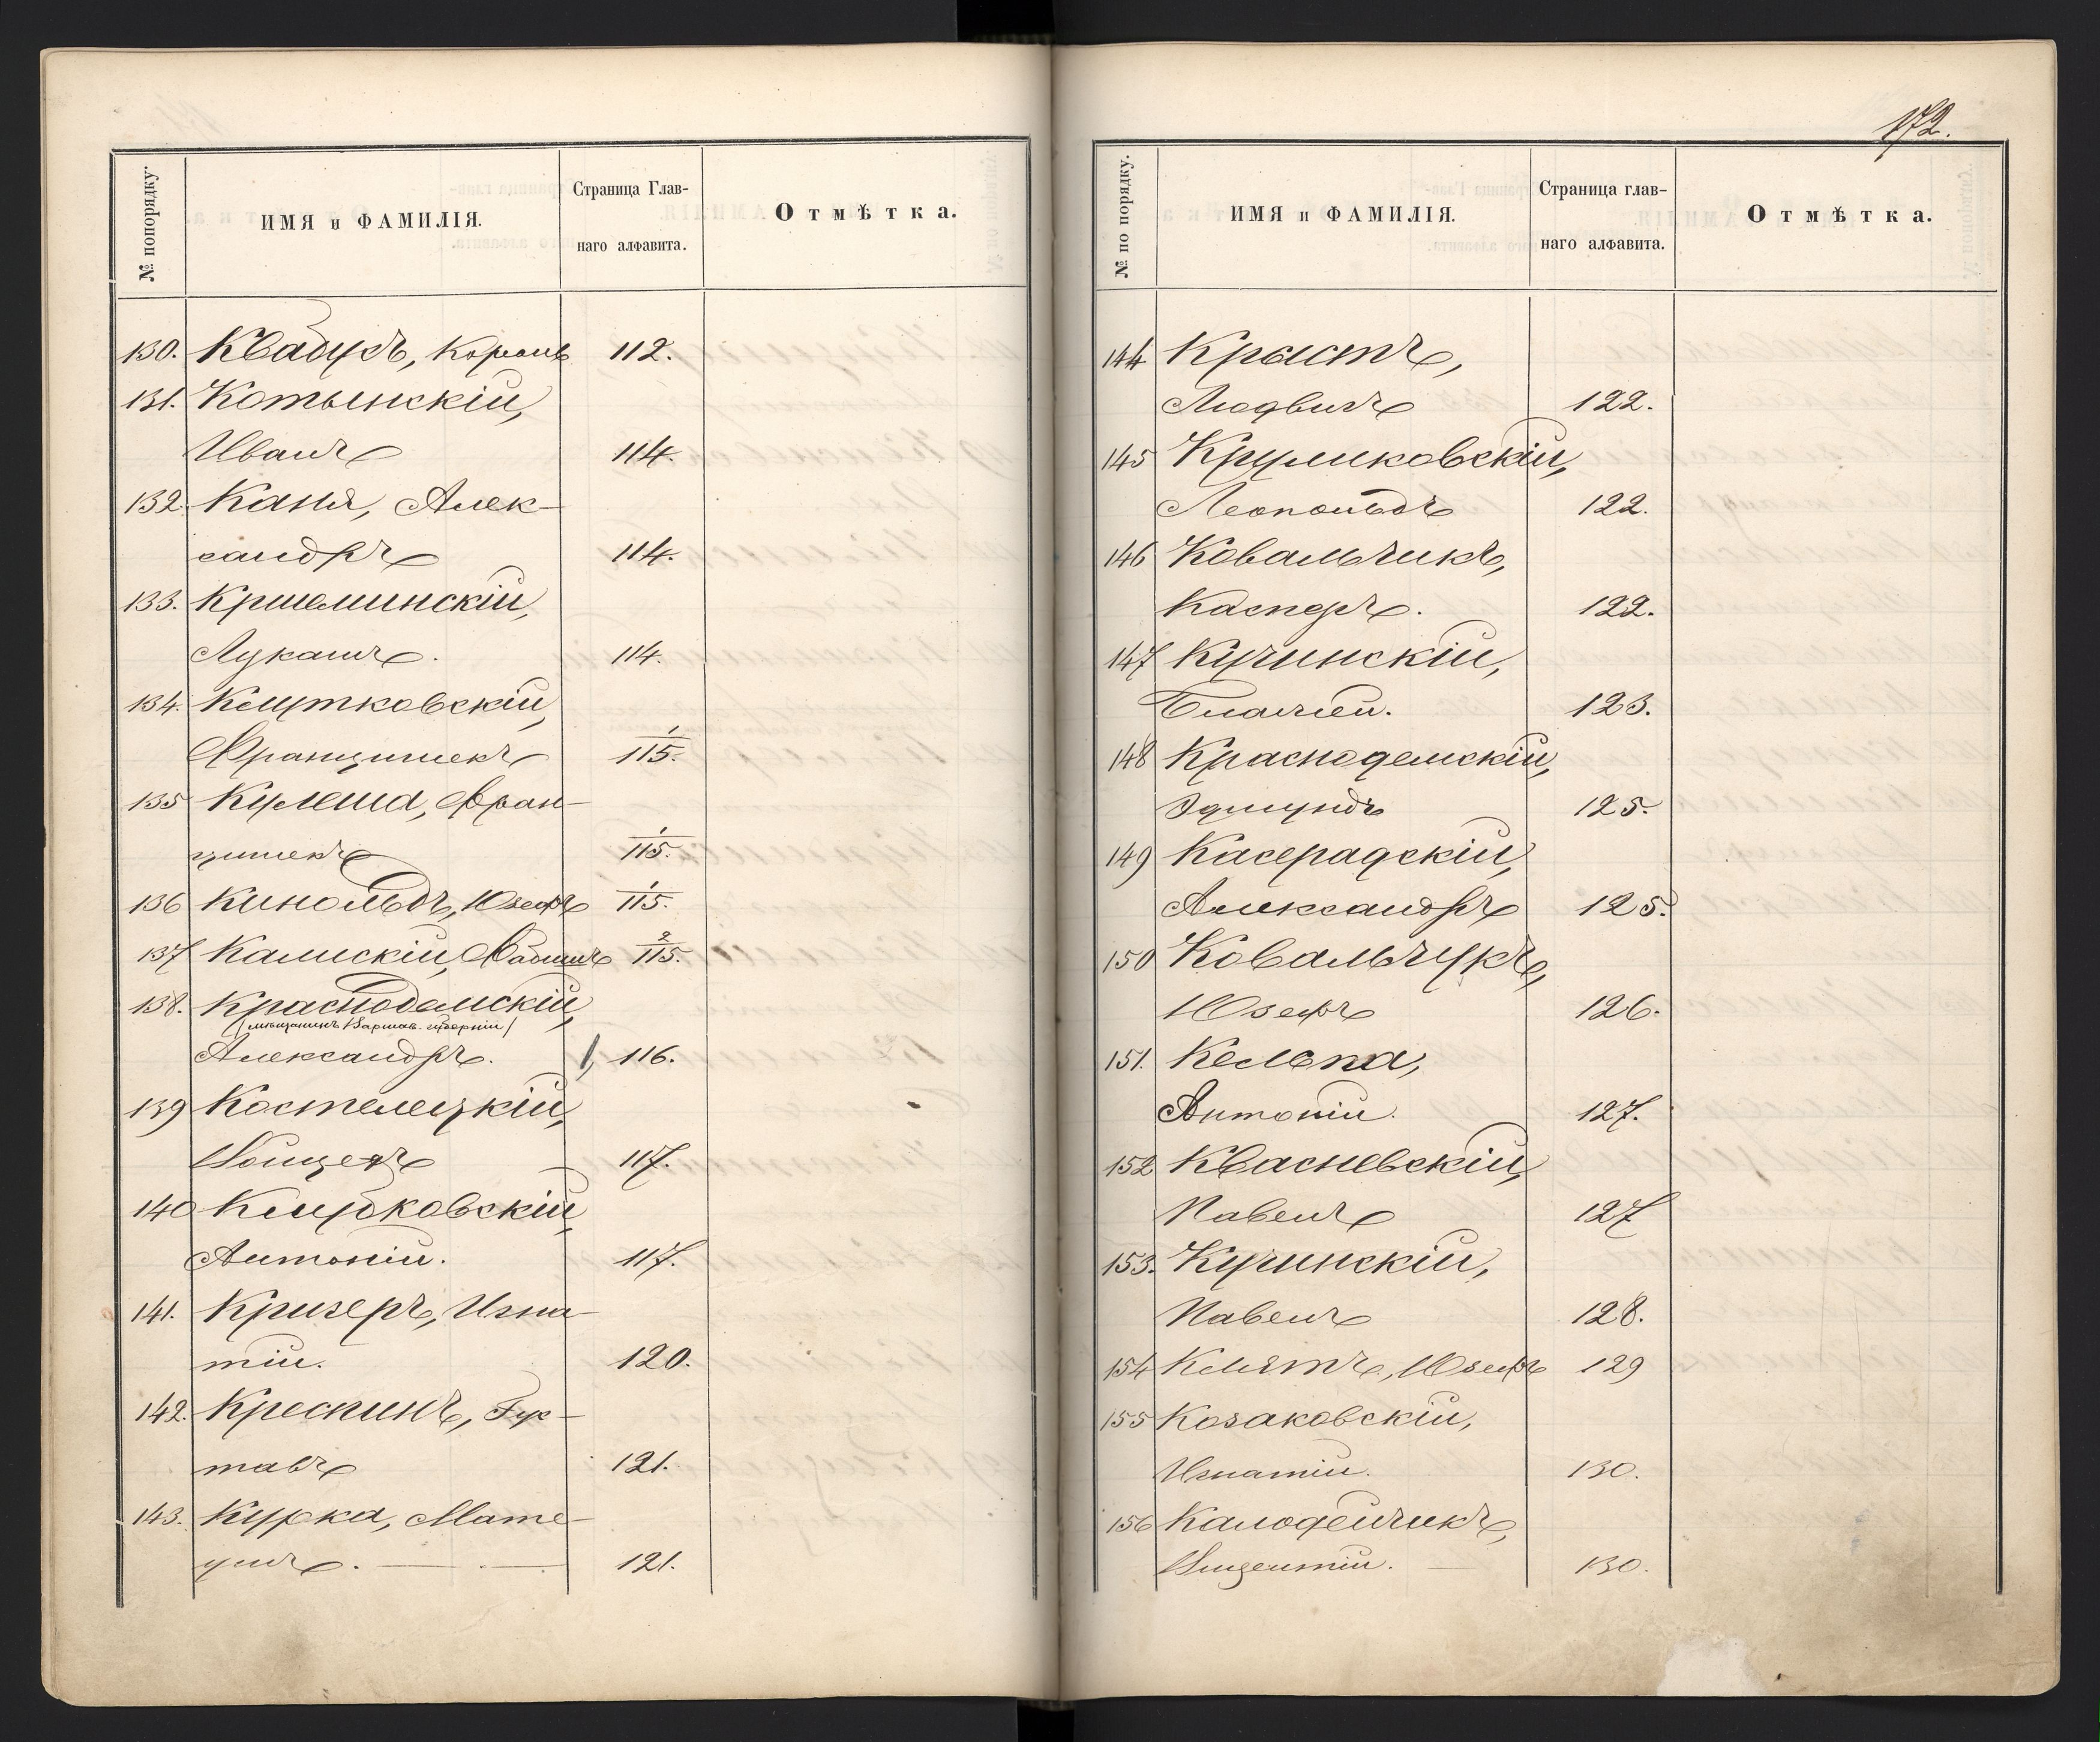 № попорядку.
ИМЯ и ФАМИЛІЯ.
Страница Глав-
наго алфавита.
Отмѣтка.
130. Квадукъ, Кароль 112.
131. Котынскій,
Иванъ 114.
132. Каня, Алек-
сандръ 114.
133. Кршеминскій,
Лукашъ. 114.
134. Клутковскій,
Францишекъ 1/115.
135 Кулеша, Фран-
цишекъ 1/115.
136 Кинольдъ, Юзефъ 1/115.
137 Калискій, Фабіанъ 2/115.
138. Красподемскій,
(мѣщанинъ Варшав. губерніи)
Александръ. 116.
139 Костелецкій,
Войцехъ 117.
140 Клудковскій,
Антоній. 117.
141. Кризеръ, Игна-
тій. 120.
142. Крескинъ, Гус-
тавъ 121.
143. Курка, Мате-
ушъ. 121.
172.
№ по порядку.
ИМЯ и ФАМИЛІЯ.
Страница глав-
наго алфавита.
Отмѣтка.
144 Крыстъ,
Людвигъ 122.
145 Круликовскій,
Леопольдъ 122.
146 Ковальчикъ,
Касперъ. 122.
147 Кучинскій,
123.
148 Красподемскій,
Эдмундъ 125.
149 Касерадскій,
Александръ 125.
150 Ковальчукъ,
Юзефъ 126.
151. Кельпа,
Антоній. 127.
152 Квасневскій,
Павелъ 127
153. Кучинскій,
Павелъ 128.
154 Клятъ, Юзефъ 129
155 Козаковскій,
Игнатій. 130.
156 Калодейчикъ,
Винцентій. 130.